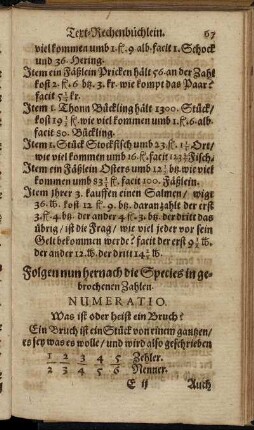 Text-Rechenbüchlein. 67
viel kommen umb 1. fl. 9 alb. facit 1. Schock
und 36. Hering.
Item ein Fäßlein Pricken hält 56. an der Zahl
kost 2. fl. 6. bz. 3. kr. wie kompt das Paar?
facit 5¼ kr.
Item 1. Thonn Bückling hält 1300. Stück/
kost 19½ fl. wie viel kommen umb 1. fl. 6. alb.
facit 80. Bückling.
Item 1. Stück Stockfisch umb 23. fl. 1. Ort/
wie viel kommen umb 16. fl. facit Fisch.
Item ein Fäßlein Osters umb 12½ bz. wie viel
kommen umb 83⅓ fl. facit 100. Fäßlein.
Item Ihrer 3. kauffen einen Salmen/ wigt
36. lb. kost 12 fl. 9. bz. daran zahlt der erst
3. fl. 4. bz. der ander 4 fl. 3. bz. der dritt das
übrig/ ist die Frag/ wie viel jeder vor sein
Gelt bekommen werde? facit der erst 9½ lb.
der ander 12. lb. der dritt 14½ lb.
Folgen nun hernach die Species in ge-
brochenen Zahlen.
NUMERATIO.
Was ist oder heist ein Bruch?
Ein Bruch ist ein Stück von einem gantzen/
es sey was es wolle/ und wird also geschrieben
1 2 3 4 5 Zehler.
2 3 4 5 6 Nenner.
E ij Auch